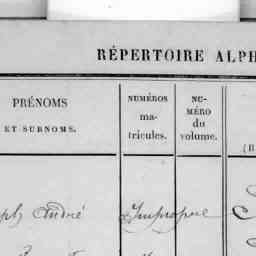 RÉPERTOIRE ALPH
PRÉNOMS
ET SURNOMS.
NUMÉROS
ma-
tricules.
NU-
MÉRO
du
volume.
ph André Impropre